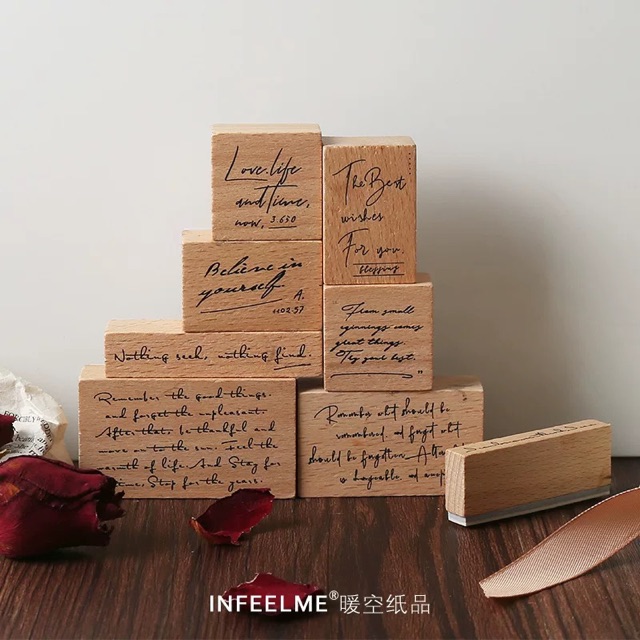 Love.life
and Time,
now, 3.650
The Best
wishes
For you.
Blessing
Believe in
yourself
A.
1102.57
From small
eginnings comes
great things.
Try your best.
"
Nothing seek, nothing find.
Remember the good things.
and forget the unpleasant.
After that, be thankful and
move on to the sun. Feel the
warmth of life. And Stay for
time, Stop for the years.
Remember what should be
remembered, and forget what
should be forgotten. Alter
is changeable, and accept
INFEELME®暖空纸品